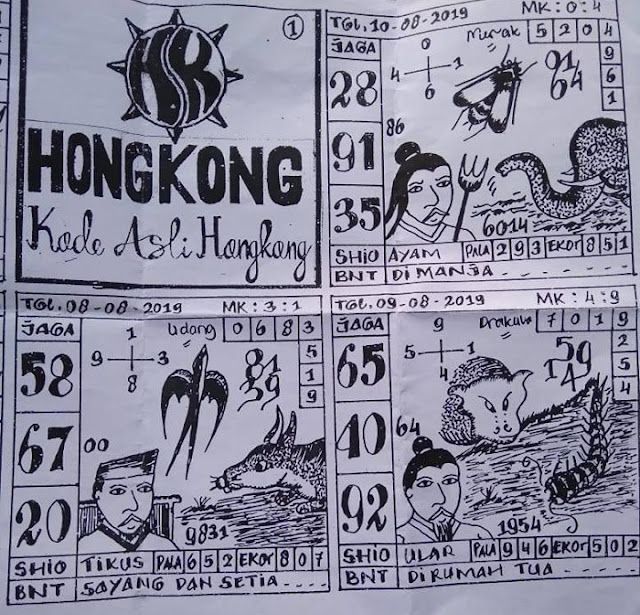 1
HK
HONGKONG
Kode Asli Hongkong
TGL.10-08-2019 MK:0:4
JAGA
28
91
35
0
4 1
6
Merak
5 2 0 4
9
6
1
91
64
86
6014
SHIO AYAM PALA 2 9 3 EKOR 8 5 1
BNT DI MANJA - - - - -
TGL.08-08-2019 MK:3:1
JAGA
58
67
20
1
9 3
8
Udang
0 6 8 3
5
1
9
81
39
00
9831
SHIO TIKUS PALA 6 5 2 EKOR 8 0 7
BNT SAYANG DAN SETIA - - - - -
TGL.09-08-2019 MK:4:9
JAGA
65
40
92
9
5 1
4
Drakula
7 0 1 9
2
5
4
59
14
64
1954
SHIO ULAR PALA 9 4 6 EKOR 5 0 2
BNT DIRUMAH TUA - - - - -